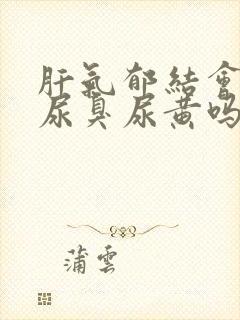 肝氣郁結會
尿臭尿黄吗
蒲雲